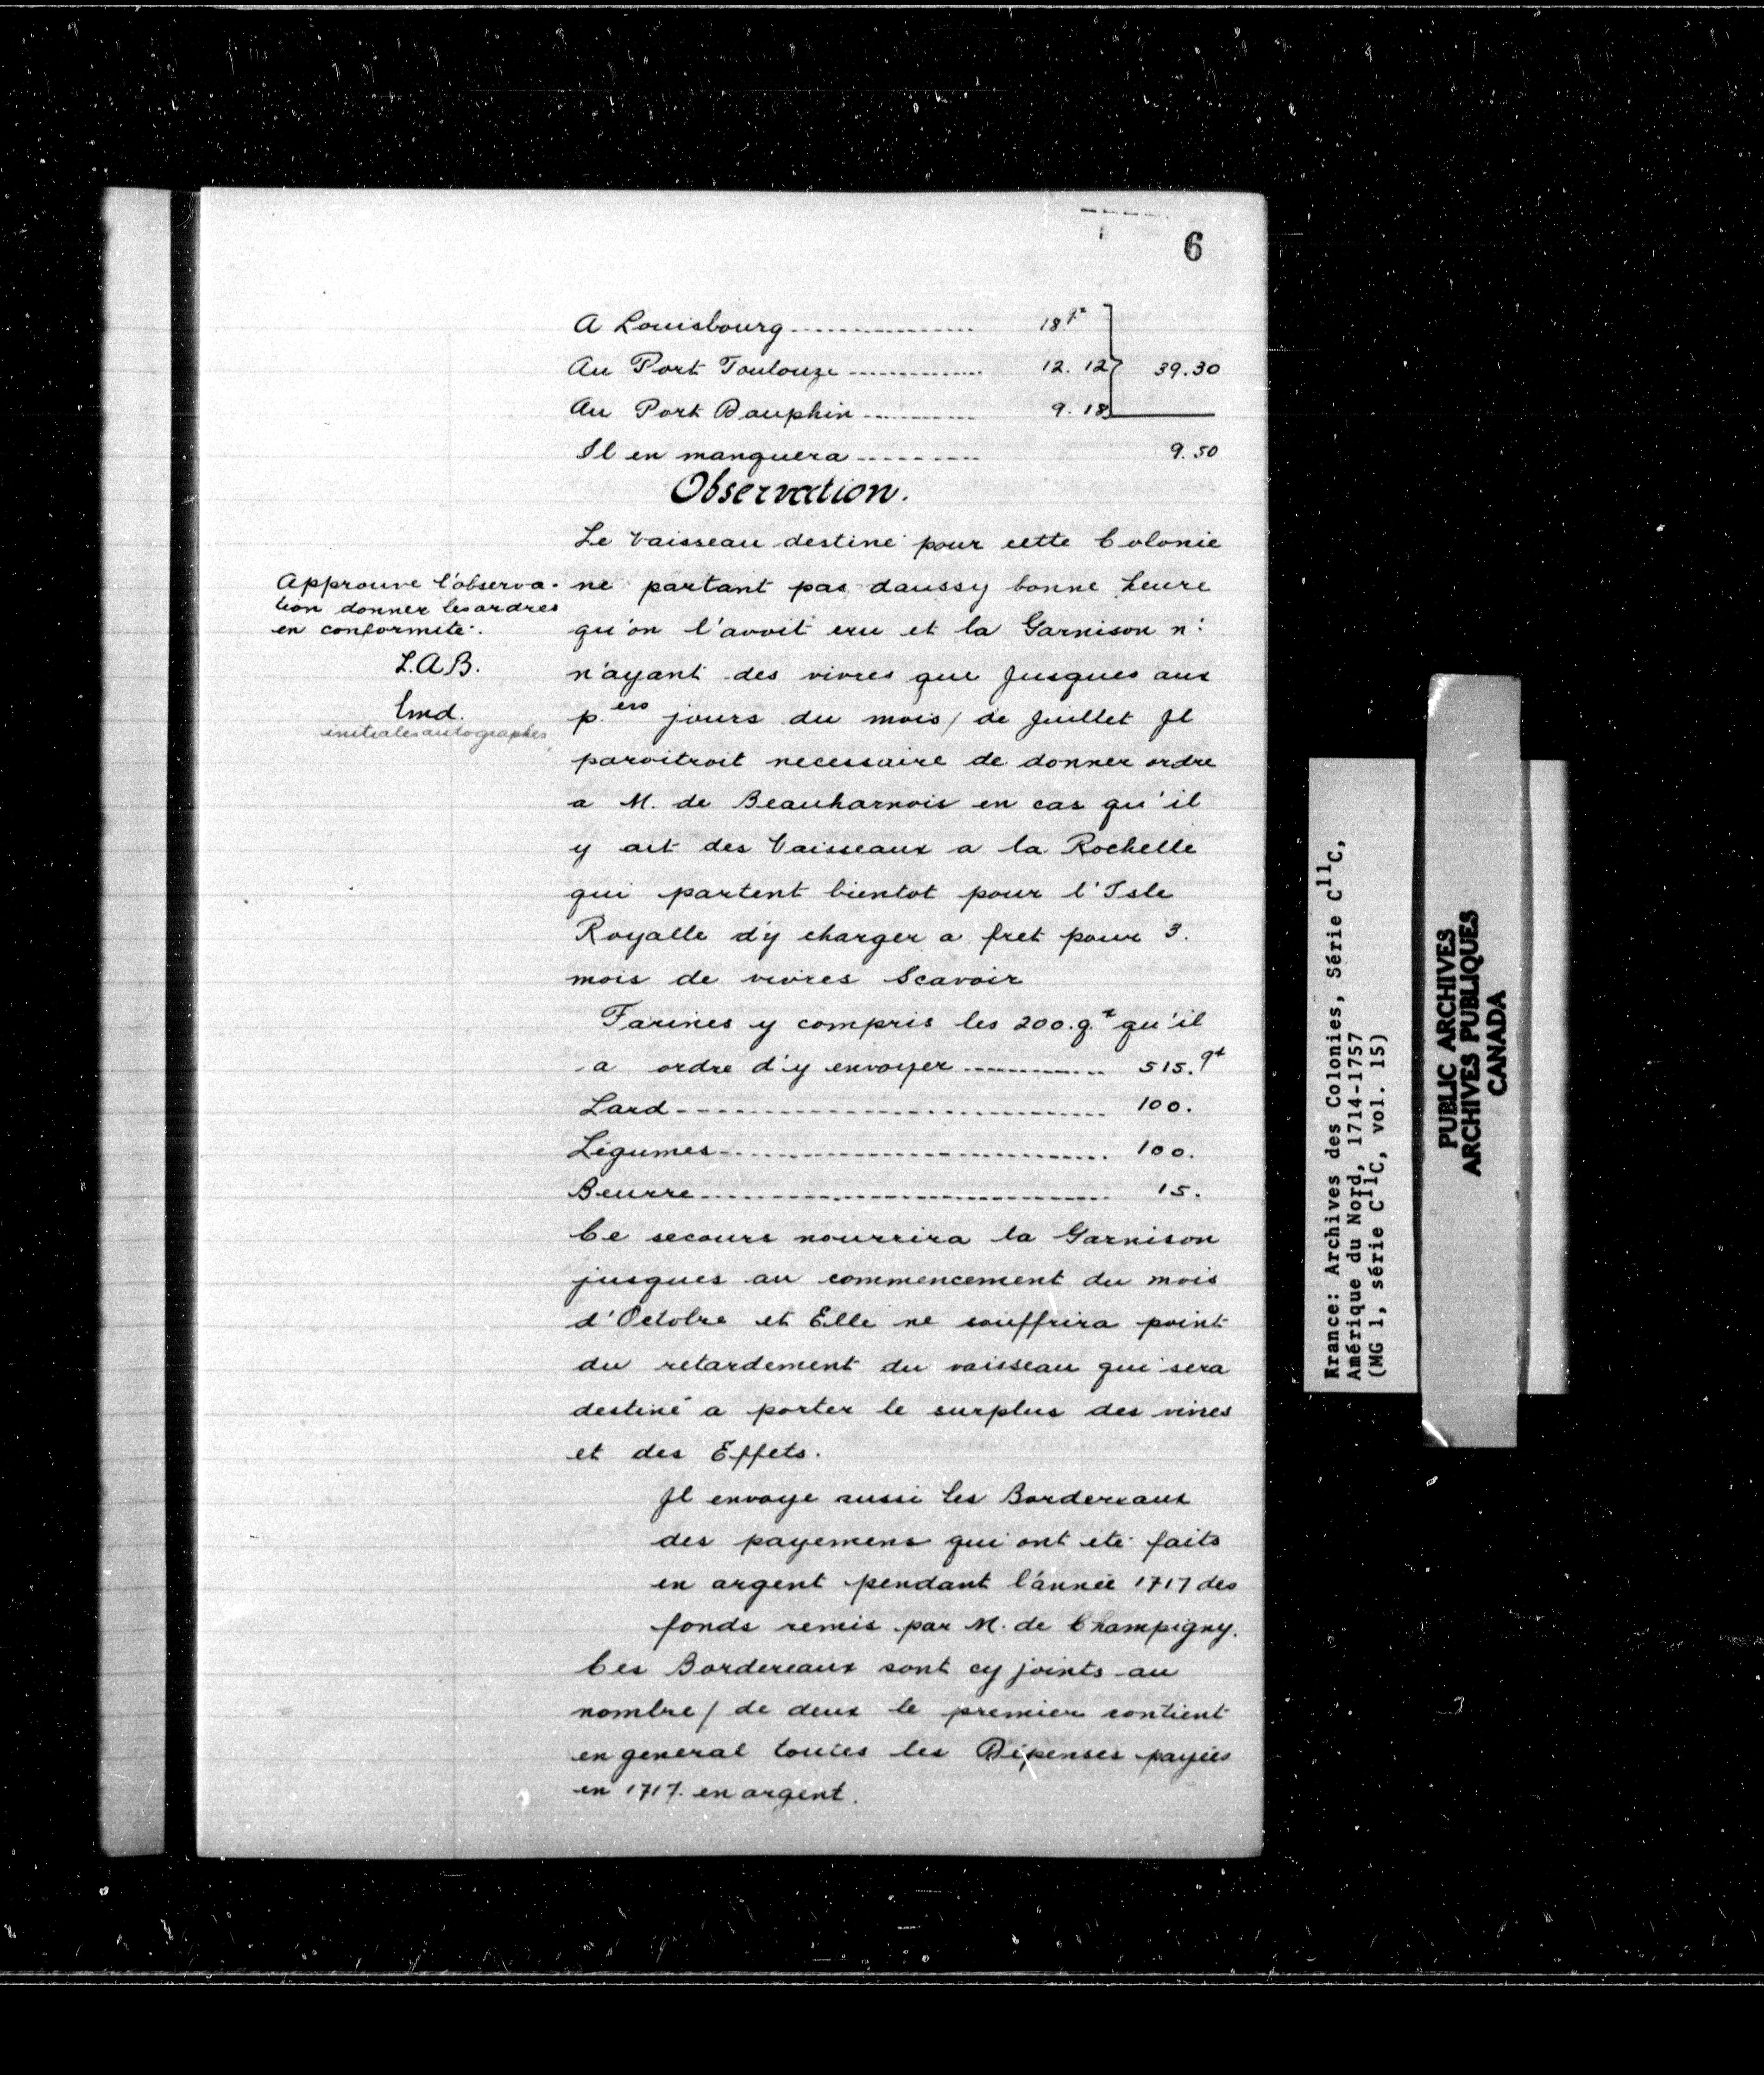 6
A Louisbourg................ 18 qx
Au Port Toulouze.............. 12. 12 } 39.30
Au Port Dauphin........... 9. 18
Il en manquera......... 9.50
Observation.
Le Vaisseau destiné pour cette Colonie
ne partant pas daussy bonne heure
qu'on l'avoit cru et la Garnison n'
n'ayant des vivres que Jusques aux
p.ers jours du mois / de Juillet Jl
paroitroit necessaire de donner ordre
a M. de Beauharnois en cas qu'il
y ait des Vaisseaux a la Rochelle
qui partent bientot pour l'Isle
Royalle d'y charger a fret pour 3.
mois de vivres Scavoir
Farines y compris les 200. qx qu'il
a ordre d'y envoyer............ 515. qx
Lard............................ 100.
Légumes............................ 100.
Beurre............................ 15.
Ce secours nourrira la Garnison
jusques au commencement du mois
d'Octobre et Elle ne souffrira point
du retardement du vaisseau qui sera
destiné a porter le surplus des vivres
et des Effets.
Jl envoye aussi les Bordereaux
des payemens qui ont été faits
en argent pendant l'année 1717 des
fonds remis par M. de Champigny.
Ces Bordereaux sont cy joints au
nombre / de deux le premier contient
en general toutes les Dépenses payées
en 1717. en argent.
Approuvé l'observa-
tion donner les ordres
en conformité.
L.A.B.
Lmd.
initiales autographes
France: Archives des Colonies, Série C11C,
Amérique du Nord, 1714-1757
(MG 1, série C11C, vol. 15)
PUBLIC ARCHIVES
ARCHIVES PUBLIQUES
CANADA